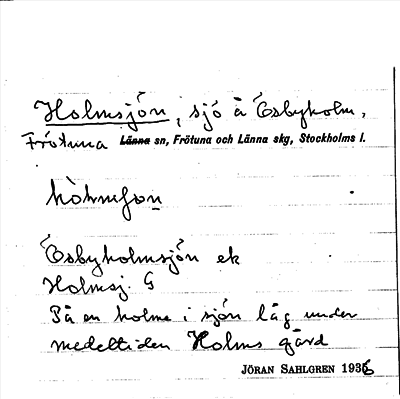 Holmsjön, sjö å Ösbyholm,
Frötuna Länna sn, Frötuna och Länna skg, Stockholms l.
hòlmsjon
Ösbyholmsjön ek
Holmsj. G
På en holme i sjön låg under
medeltiden Holms gård
JÖRAN SAHLGREN 1936